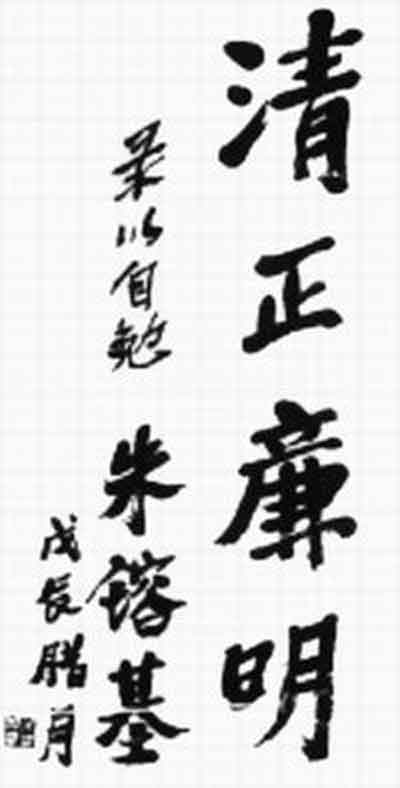 清正廉明
录以自勉 朱镕基
戊辰腊月